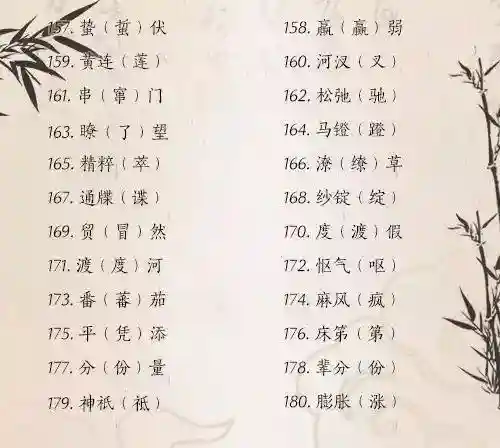 157. 蛰（蜇）伏
158. 羸（赢）弱
159. 黄连（莲）
160. 河汊（叉）
161. 串（窜）门
162. 松弛（驰）
163. 瞭（了）望
164. 马镫（蹬）
165. 精粹（萃）
166. 潦（缭）草
167. 通牒（谍）
168. 纱锭（绽）
169. 贸（冒）然
170. 度（渡）假
171. 渡（度）河
172. 怄气（呕）
173. 番（蕃）茄
174. 麻风（疯）
175. 平（凭）添
176. 床笫（第）
177. 分（份）量
178. 辈分（份）
179. 神祇（祗）
180. 膨胀（涨）